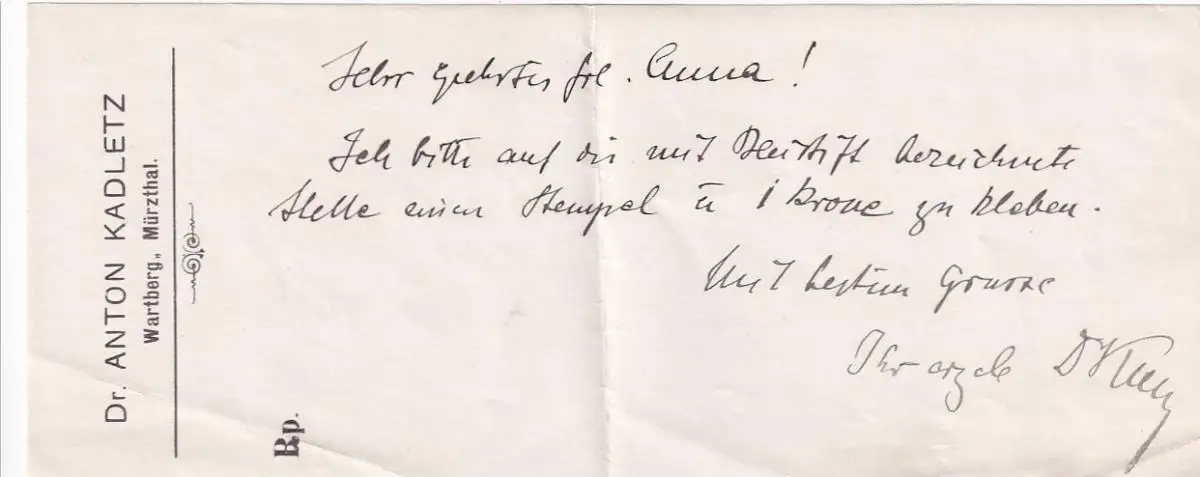 Dr. ANTON KADLETZ
Wartberg„ Mürzthal.
Rp.
Sehr geehrtes Frl. Anna!
Ich bitte auf die mit Bleistift bezeichnete
Stelle einen Stempel ū 1 Krone zu kleben.
Mit bestem Grusse
Ihr ergeb